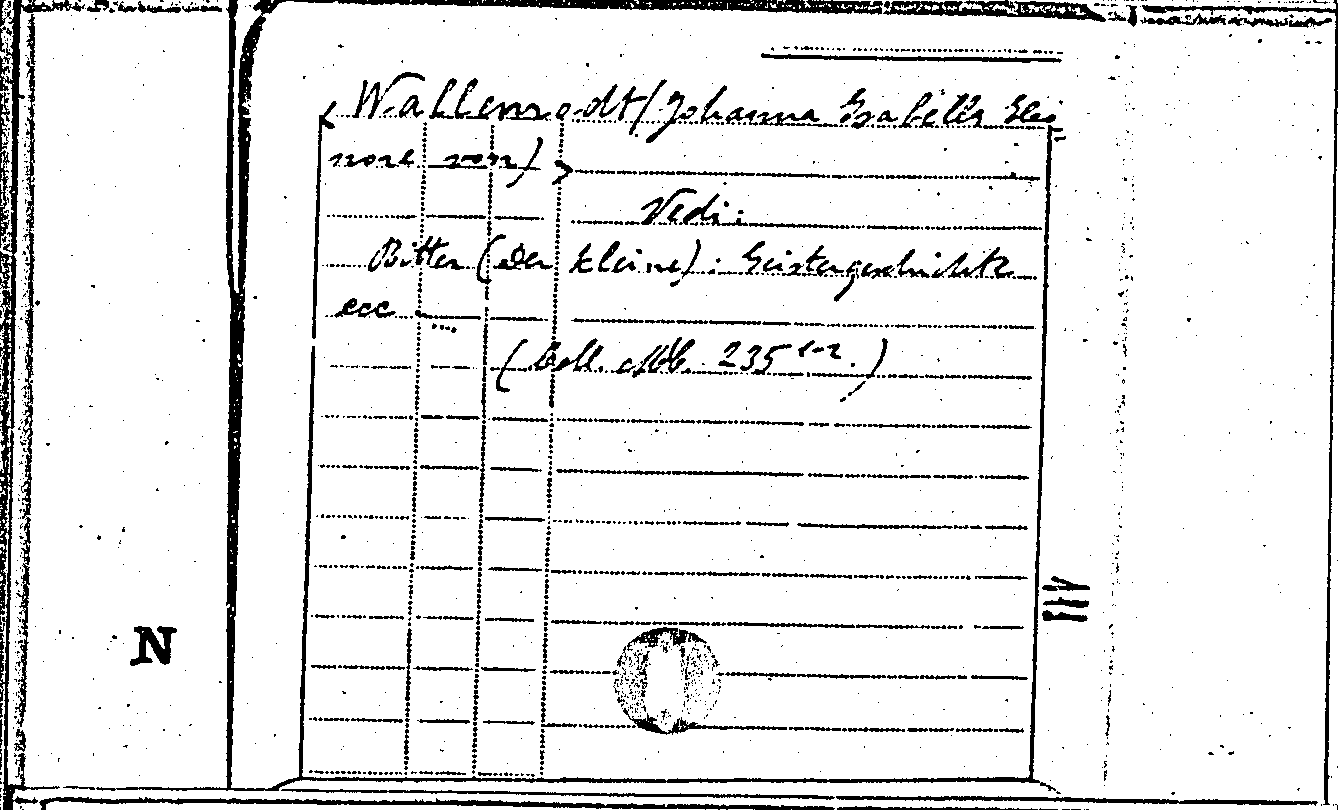 < Wallenrodt (Johanna Isabella Eleo=
nore von) >
Vedi:
Ritter (Der kleine): Geistergeschichte
ecc ....
(Coll. Mob. 235 1-2.)
N